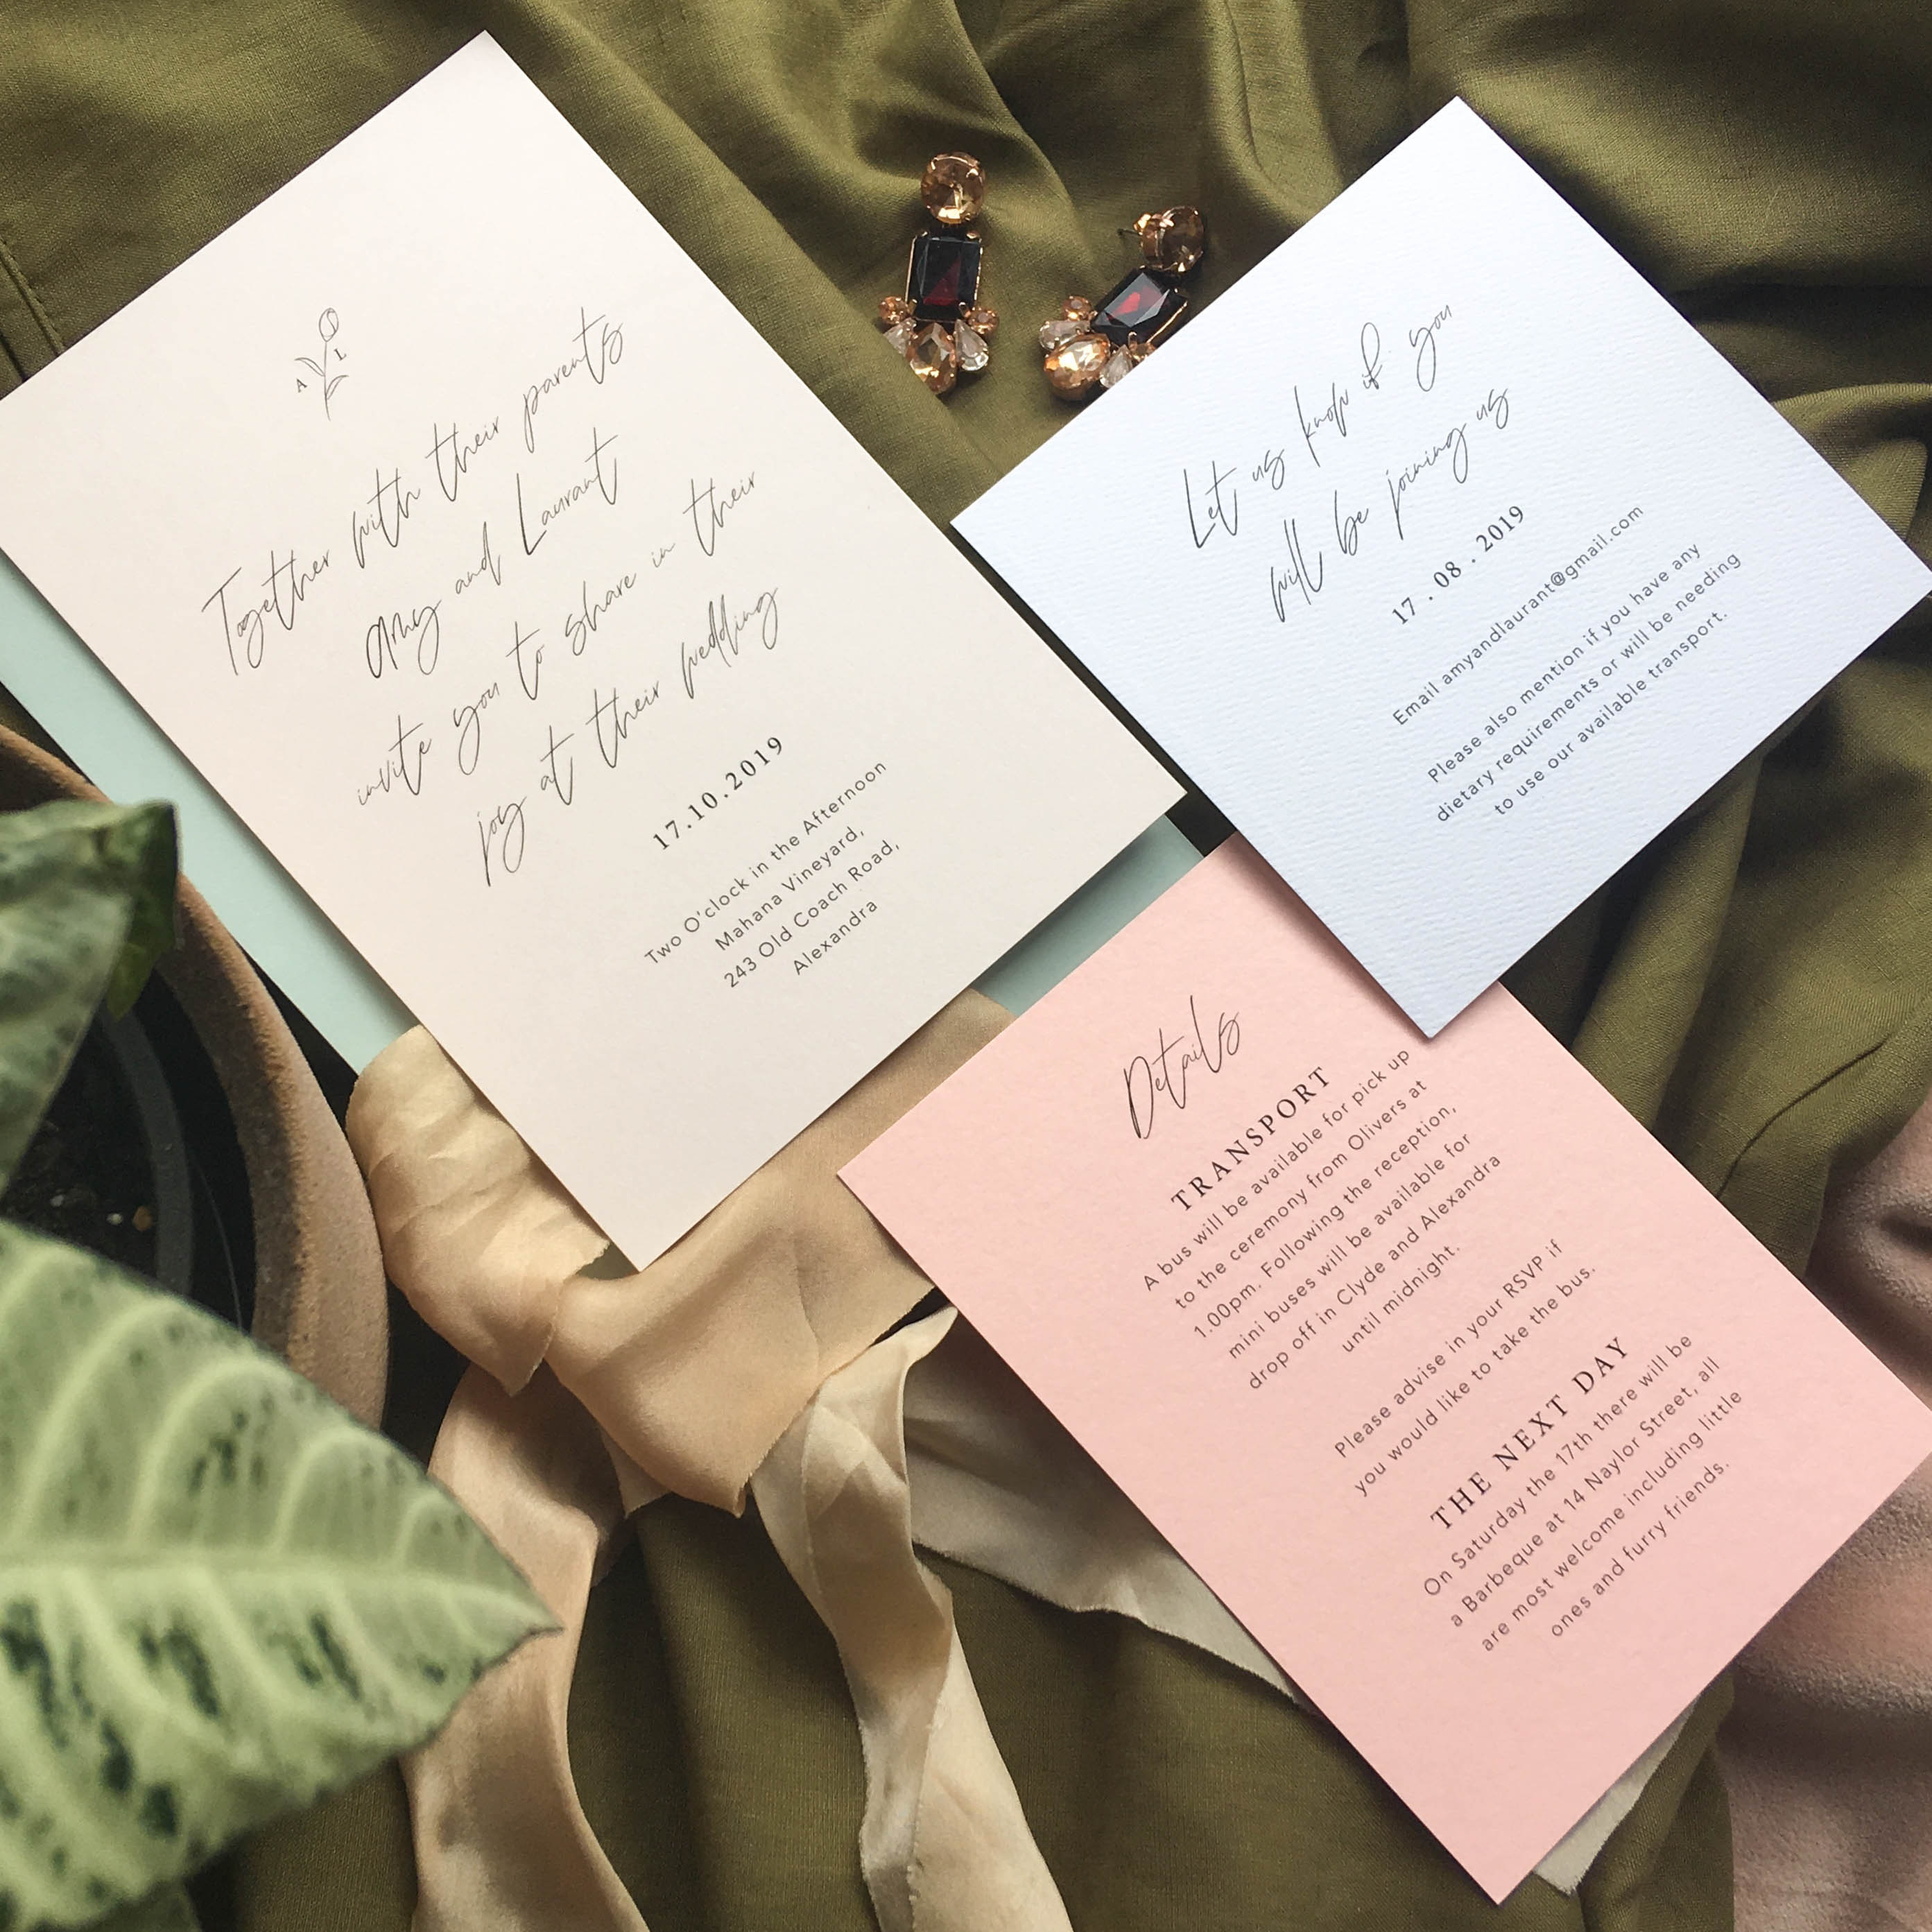 A L
Together with their parents
Amy and Laurant
invite you to share in their
joy at their wedding
17.10.2019
Two O'clock in the Afternoon
Mahana Vineyard,
243 Old Coach Road,
Alexandra
Let us know if you
will be joining us
17 . 08 . 2019
Email amyandlaurant@gmail.com
Please also mention if you have any
dietary requirements or will be needing
to use our available transport.
Details
TRANSPORT
A bus will be available for pick up
to the ceremony from Olivers at
1.00pm. Following the reception,
mini buses will be available for
drop off in Clyde and Alexandra
until midnight.
Please advise in your RSVP if
you would like to take the bus.
THE NEXT DAY
On Saturday the 17th there will be
a Barbeque at 14 Naylor Street, all
are most welcome including little
ones and furry friends.